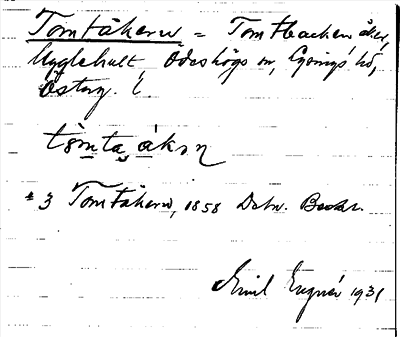 Tomtåkern = Tomtbacken åker,
Ugglehult Ödeshögs sn, Lysings hd,
Östrg. l.
tomta åkɘrn
*3 Tomtåkern, 1858 Dokn. Beskr.
Emil Engnér 1931